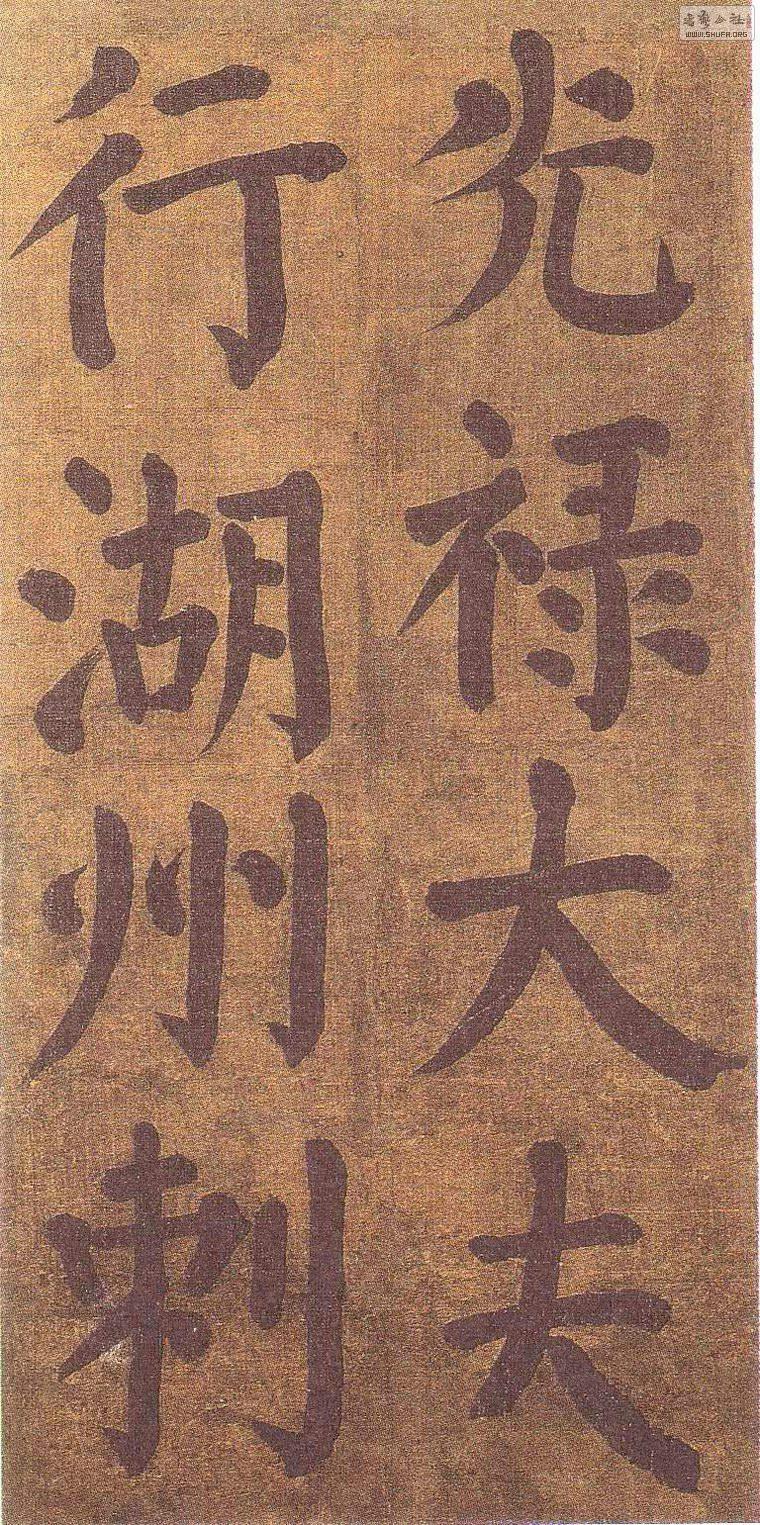 光禄大夫
行湖州刺
WWW.SHUFA.ORG